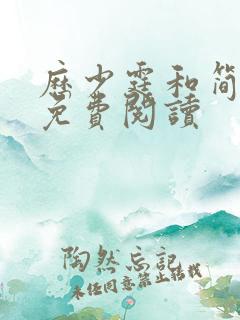 厤少霆和简
免費閱讀
陶然忘記
未经同意禁止转载